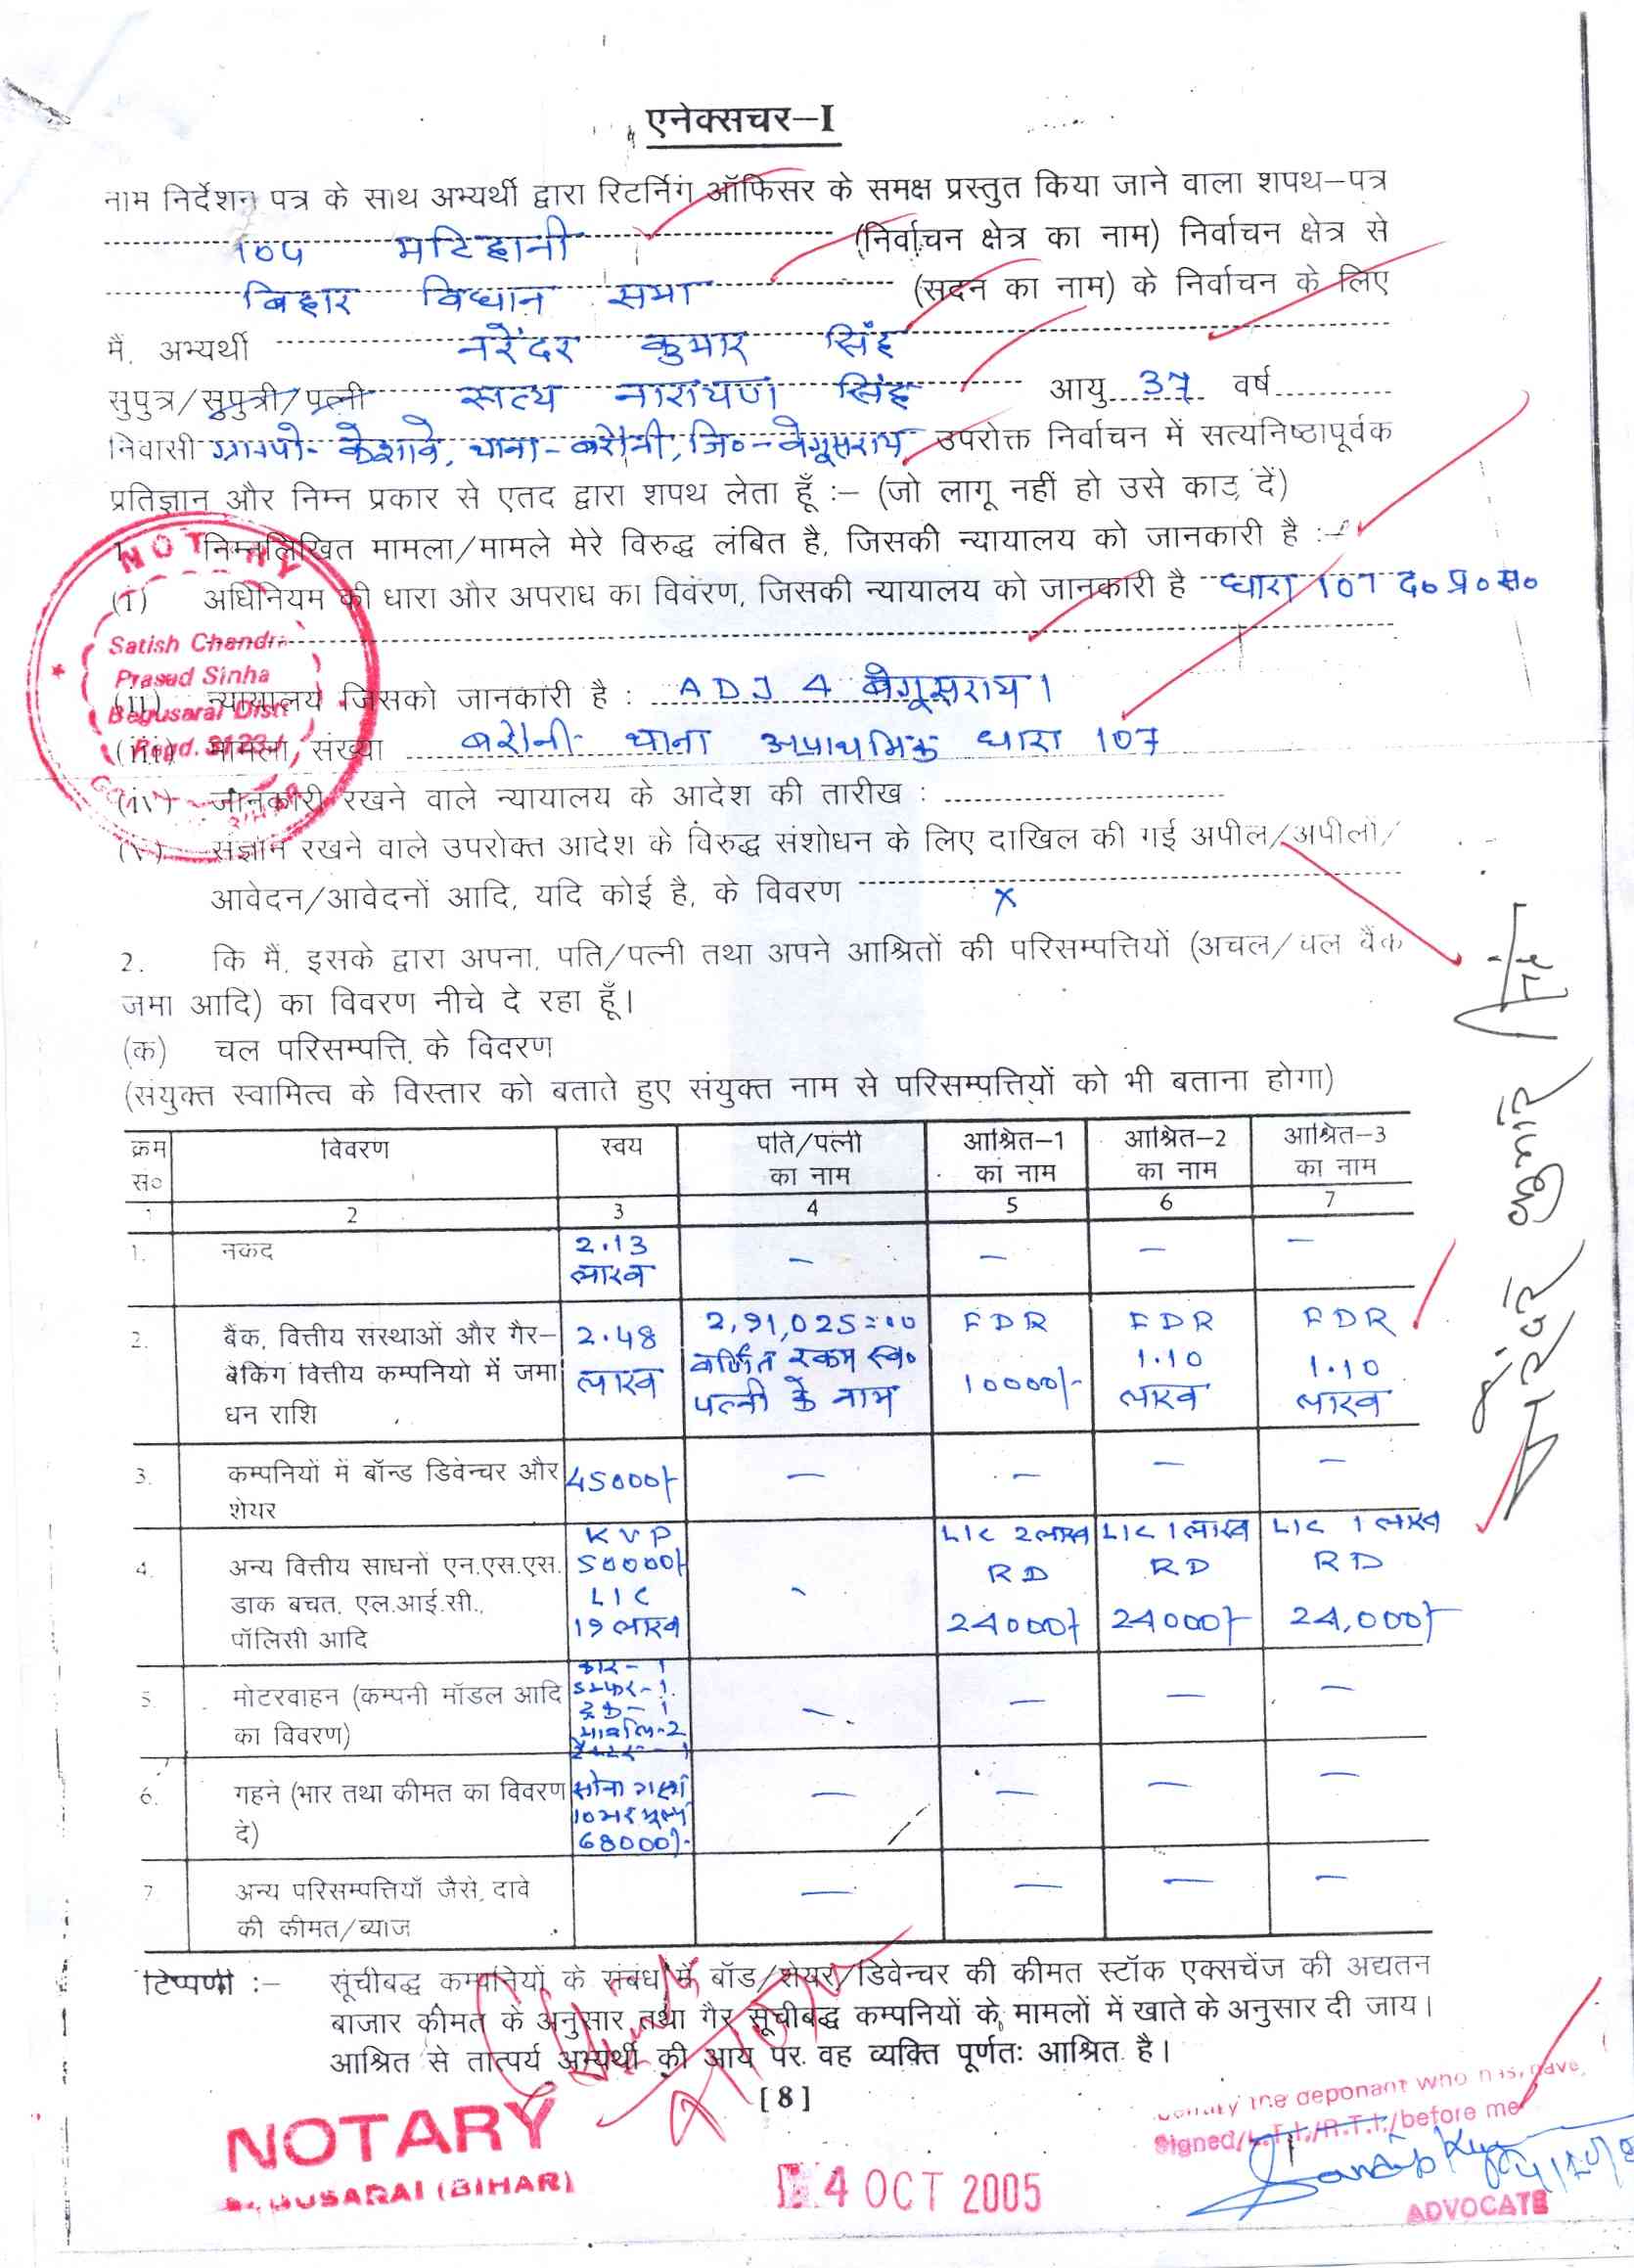 एनेक्सचर-I
नाम निर्देशन पत्र के साथ अभ्यर्थी द्वारा रिटर्निग ऑफिसर के समक्ष प्रस्तुत किया जाने वाला शपथ-पत्र
105 मटिहानी (निर्वाचन क्षेत्र का नाम) निर्वाचन क्षेत्र से
बिहार विधान सभा (सदन का नाम) के निर्वाचन के लिए
मैं, अभ्यर्थी नरेंदर कुमार सिंह
सुपुत्र/सुपुत्री/पत्नी सत्य नारायण सिंह आयु 37 वर्ष
निवासी ग्रा०पो- केशावे, थाना- बरौनी, जि०- बेगूसराय उपरोक्त निर्वाचन में सत्यनिष्ठापूर्वक
प्रतिज्ञान और निम्न प्रकार से एतद द्वारा शपथ लेता हूँ :- (जो लागू नहीं हो उसे काट दें)
1. निम्नलिखित मामला/मामले मेरे विरुद्ध लंबित है, जिसकी न्यायालय को जानकारी है :-
(i) अधिनियम की धारा और अपराध का विवरण, जिसकी न्यायालय को जानकारी है धारा 107 द० प्र० स०
(ii) न्यायालय जिसको जानकारी है : ADJ 4 बेगूसराय।
(iii) मामला संख्या बरौनी थाना अप्राथमिक धारा 107
(iv) जानकारी रखने वाले न्यायालय के आदेश की तारीख :
(v) संज्ञान रखने वाले उपरोक्त आदेश के विरुद्ध संशोधन के लिए दाखिल की गई अपील/अपीलों/
आवेदन/आवेदनों आदि, यदि कोई है, के विवरण x
NOTARY
Satish Chandra
Prasad Sinha
Begusarai Distt
2. कि मैं, इसके द्वारा अपना, पति/पत्नी तथा अपने आश्रितों की परिसम्पत्तियों (अचल/चल बैंक
जमा आदि) का विवरण नीचे दे रहा हूँ।
(क) चल परिसम्पत्ति के विवरण
(संयुक्त स्वामित्व के विस्तार को बताते हुए संयुक्त नाम से परिसम्पत्तियों को भी बताना होगा)
क्रम विवरण स्वय पति/पत्नी आश्रित-1 आश्रित-2 आश्रित-3
स० का नाम का नाम का नाम का नाम
1 2 3 4 5 6 7
1. नकद 2.13 — — — —
लाख
2. बैंक, वित्तीय संस्थाओं और गैर- 2.48 2,91,025=00 FDR FDR FDR
बैंकिंग वित्तीय कम्पनियो में जमा लाख वर्णित रकम स्व० 10000/- 1.10 1.10
धन राशि पत्नी के नाम लाख लाख
3. कम्पनियों में बॉन्ड डिवेन्चर और 45000/- — — — —
शेयर
4. अन्य वित्तीय साधनों एन.एस.एस. KVP 50000/- - LIC 2 लाख LIC 1 लाख LIC 1 लाख
डाक बचत, एल.आई.सी., LIC RD RD RD
पॉलिसी आदि 19 लाख 24000/- 24000/- 24,000/-
5. मोटरवाहन (कम्पनी मॉडल आदि कार- 1 — — — —
का विवरण) डम्फर- 1
ट्रक- 1
6. गहने (भार तथा कीमत का विवरण सोना गहना — — — —
दे) 10 भर मूल्य
68000/-
7. अन्य परिसम्पत्तियाँ जैसे, दावे — — — —
की कीमत/ब्याज
नरेंदर कुमार सिंह
टिप्पणी :- सूंचीबद्ध कम्पनियों के संबंध में बॉड/शेयर/डिवेन्चर की कीमत स्टॉक एक्सचेंज की अद्यतन
बाजार कीमत के अनुसार तथा गैर सूचीबद्ध कम्पनियों के मामलों में खाते के अनुसार दी जाय।
आश्रित से तात्पर्य अभ्यर्थी की आय पर वह व्यक्ति पूर्णतः आश्रित है।
[8]
NOTARY
BEGUSARAI (BIHAR)
4 OCT 2005
the deponant who has, gave,
Signed/L.T.I./R.T.I./before me
ADVOCATE